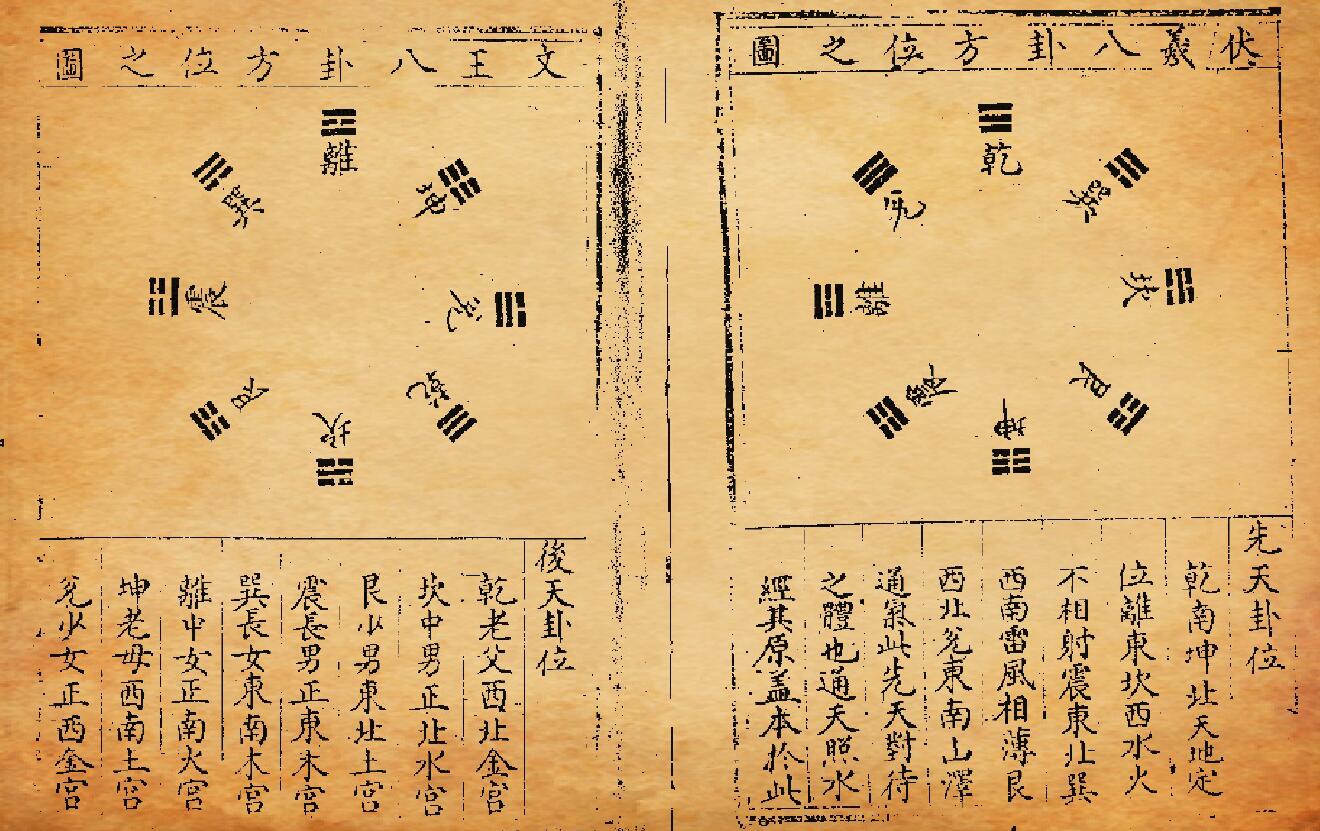 伏羲八卦方位之圖
乾
巽
兌
坎
離
艮
震
坤
先天卦位
乾南坤北天地定
位離東坎西水火
不相射震東北巽
西南雷風相薄艮
西北兌東南山澤
通氣此先天對待
之體也通天照水
經其原盖本於此
文王八卦方位之圖
離
坤
巽
兌
震
乾
艮
坎
後天卦位
乾老父西北金宮
坎中男正北水宮
艮少男東北土宮
震長男正東木宮
巽長女東南木宮
離中女正南火宮
坤老母西南土宮
兌少女正西金宮